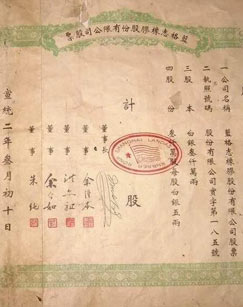 藍格志橡膠股份有限公司股票
一公司名稱
藍格志橡膠股份有限公司股票
二執照號碼
股份有限公司實字第一八五號
三股本
白銀叁仟萬兩
四股份
叁
萬股每股白銀五兩
計
股
董事長
董事
董事
董事
朱純
宣統二年叁月初十日
SHANGHAI LANGKAT